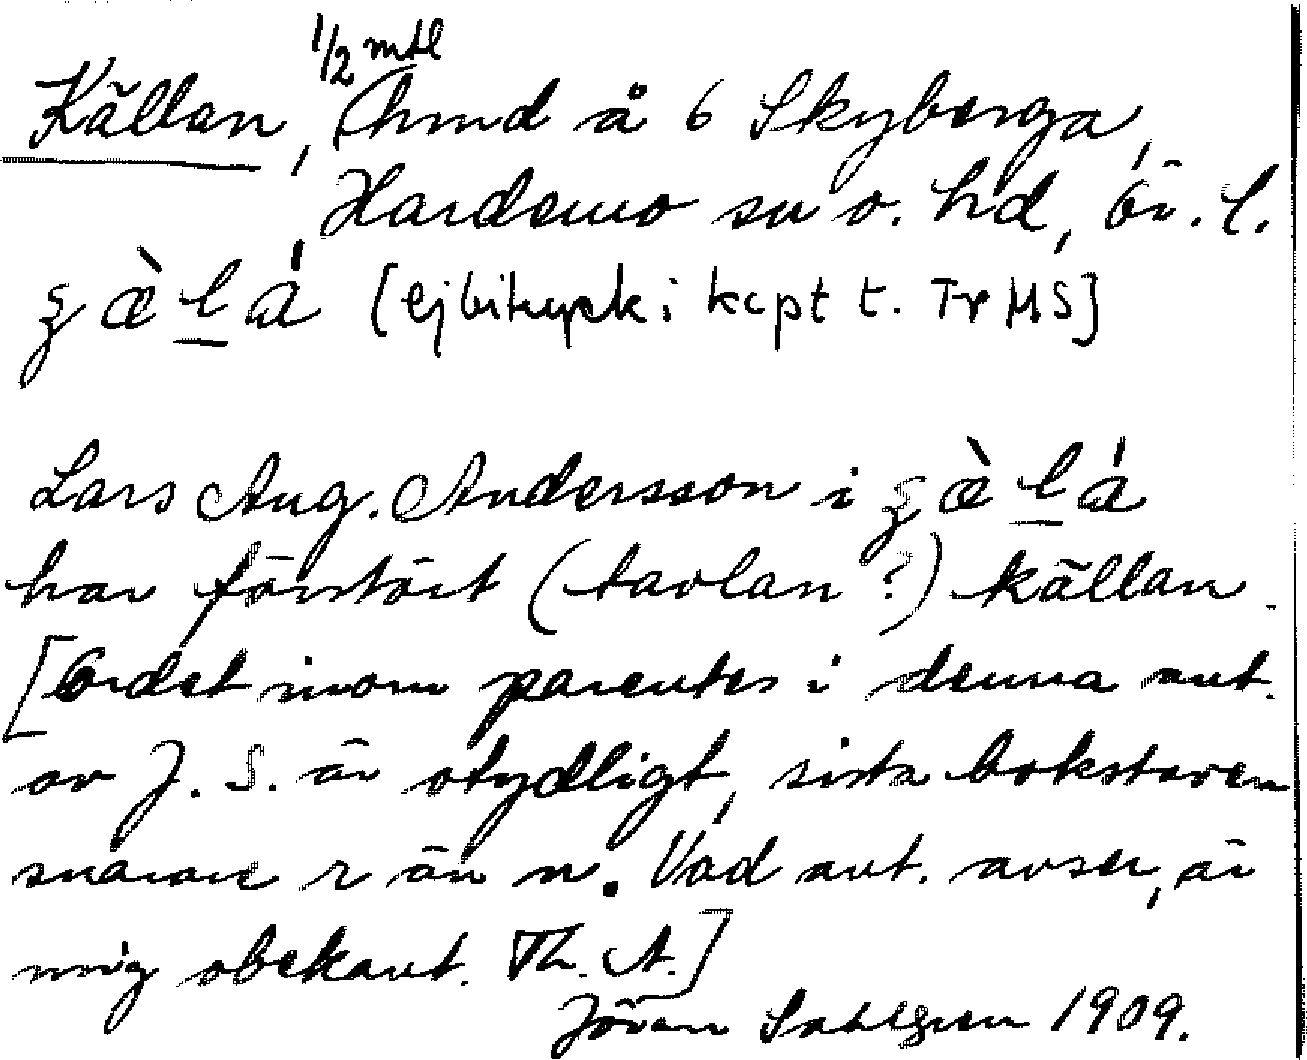 1/2 mtl
Källan, hmd å 6 Skyberga,
Hardemo sn o. hd, ör. l.
ȥæ̀l̲á [ej bitryck i kcpt t. Tr MS]
Lars Aug. Andersson i ȥæ̀l̲á
har förstört (tavlan?) källan.
[Ordet inom parentes i denna ant.
av J. S. är otydligt, sista bokstaven
snarare r än n. Vad ant. avser, är
mig obekant. Th. A.]
Jöran Sahlgren 1909.